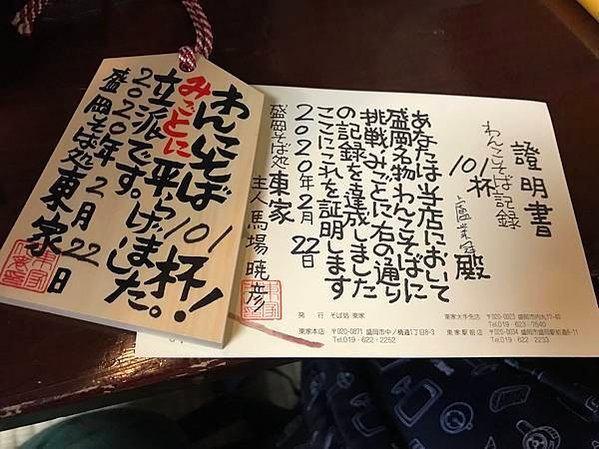 わんこそば101杯!
みごとに平らげました。
立派です。
2020年2月22日
盛岡そば処東家
證明書
わんこそば記録
101杯
殿
あなたは当店において
盛岡名物わんこそばに
挑戦みごとに右の通り
の記録を達成しました
ここにこれを証明します
2020年2月22日
盛岡そば処東家
主人 馬場暁彦
発 行 そば処 東家
東家本店 〒020-0871 盛岡市中ノ橋通1丁目8-3
Tel.019-622-2252
東家大手先店 〒020-0023 盛岡市内丸
Tel.019-623-7540
東家駅前店 〒020-0034 盛岡市盛岡駅前通8-11
Tel.019-622-2233